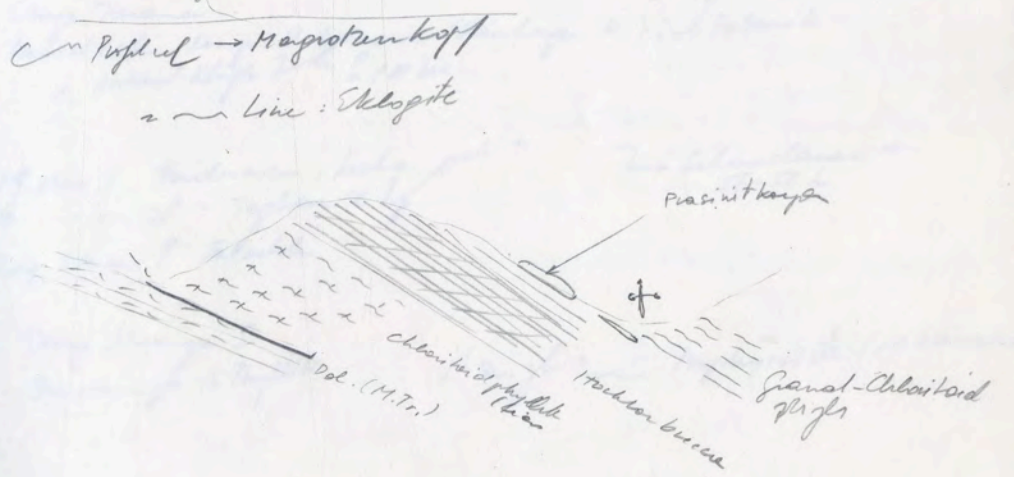 Profil → Magrotzenkopf
Line : Eklogite
Prasinitkörper
Chloritoidphyllit
Dol. (M.Tr.)
Hochtorbreccie
Granat-Chloritoid
phyll